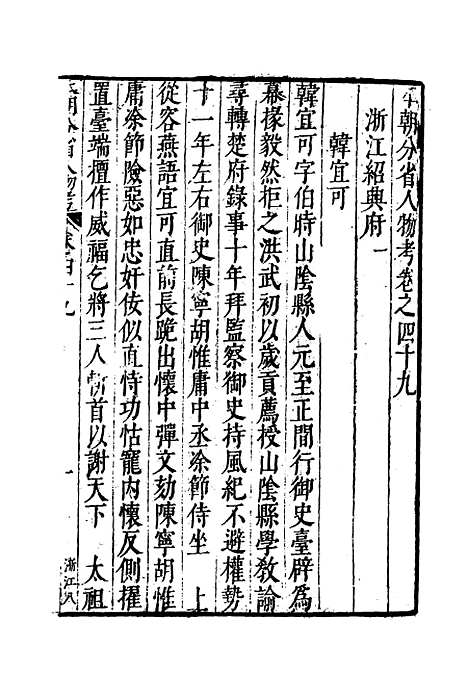 本朝分省人物考卷之四十九
浙江紹興府一
韓宜可
韓宜可字伯時山陰縣人元至正間行御史臺辟爲
幕掾毅然拒之洪武初以歲貢薦授山陰縣學敎諭
尋轉楚府錄事十年拜監察御史持風紀不避權勢
十一年左右御史陳寧胡惟庸中丞涂節侍坐 上
從容燕語宜可直前長跪出懷中彈文劾陳寧胡惟
庸涂節險惡如忠奸佞似直恃功怙寵內懷反側擢
置臺端擅作威福乞將三人斬首以謝天下 太祖
本朝分省人物考 卷四十九 一 浙江八